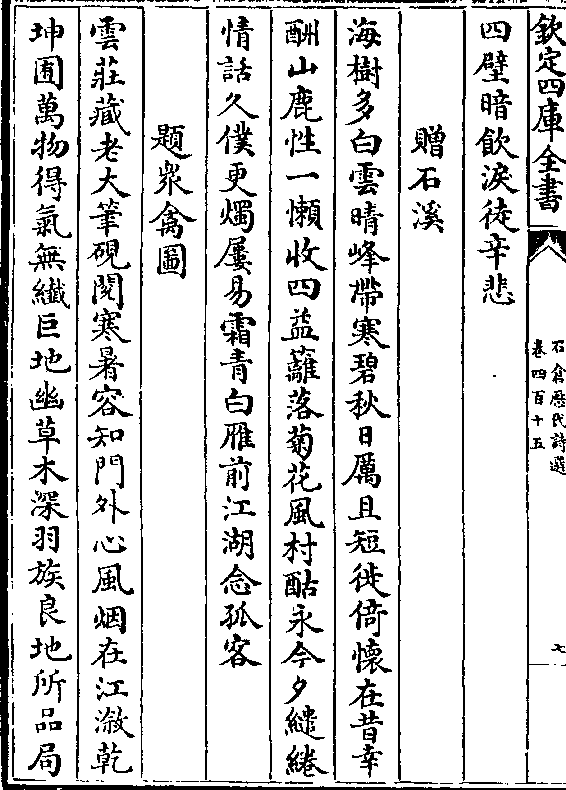 欽定四庫全書
石倉歷代詩選
卷四百十五
七
四壁暗飲淚徒辛悲
贈石溪
海樹多白雲晴峰帶寒碧秋日厲且短徙倚懷在昔幸
酬山鹿性一懶收四益籬落菊花風村酤永今夕繾綣
情話久僕更燭屢易霜青白雁前江湖念孤客
題眾禽圖
雲莊藏老大筆硯閱寒暑容知門外心風烟在江滸乾
坤囿萬物得氣無纖巨地幽草木深羽族良地所品局